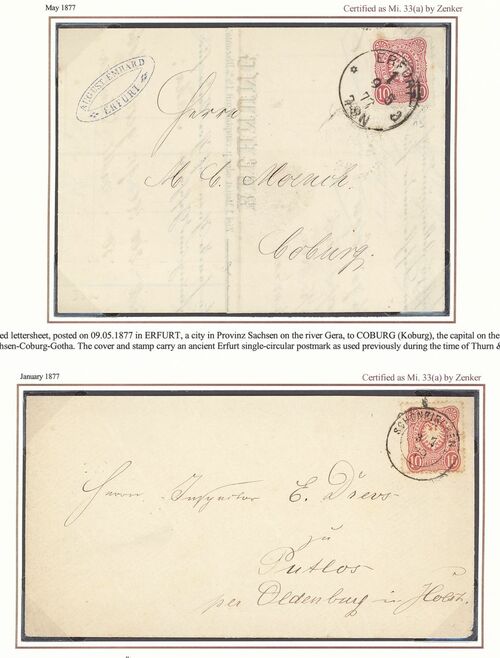 May 1877
Certified as Mi. 33(a) by Zenker
AUGUST EMHARD
ERFURT
ERFURT
1
9 5
77
10 10
Herrn
M. C. Moench.
Coburg.
RECHNUNG
ed lettersheet, posted on 09.05.1877 in ERFURT, a city in Provinz Sachsen on the river Gera, to COBURG (Koburg), the capital on the
chsen-Coburg-Gotha. The cover and stamp carry an ancient Erfurt single-circular postmark as used previously during the time of Thurn &
January 1877
Certified as Mi. 33(a) by Zenker
SCHÖNKIRCHEN
10 10
Herrn Inspector E. Drews
zu
Putlos
per Oldenburg in Holst.